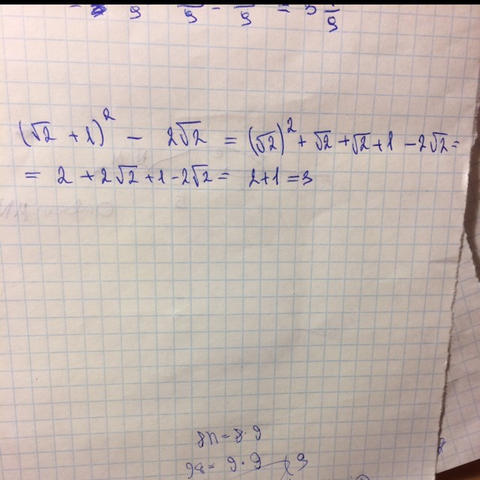 (√2 + 1)² - 2√2 = (√2)² + √2 + √2 + 1 - 2√2 =
= 2 + 2√2 + 1 - 2√2 = 2+1 = 3
8n = 8·9
9a = 9·9